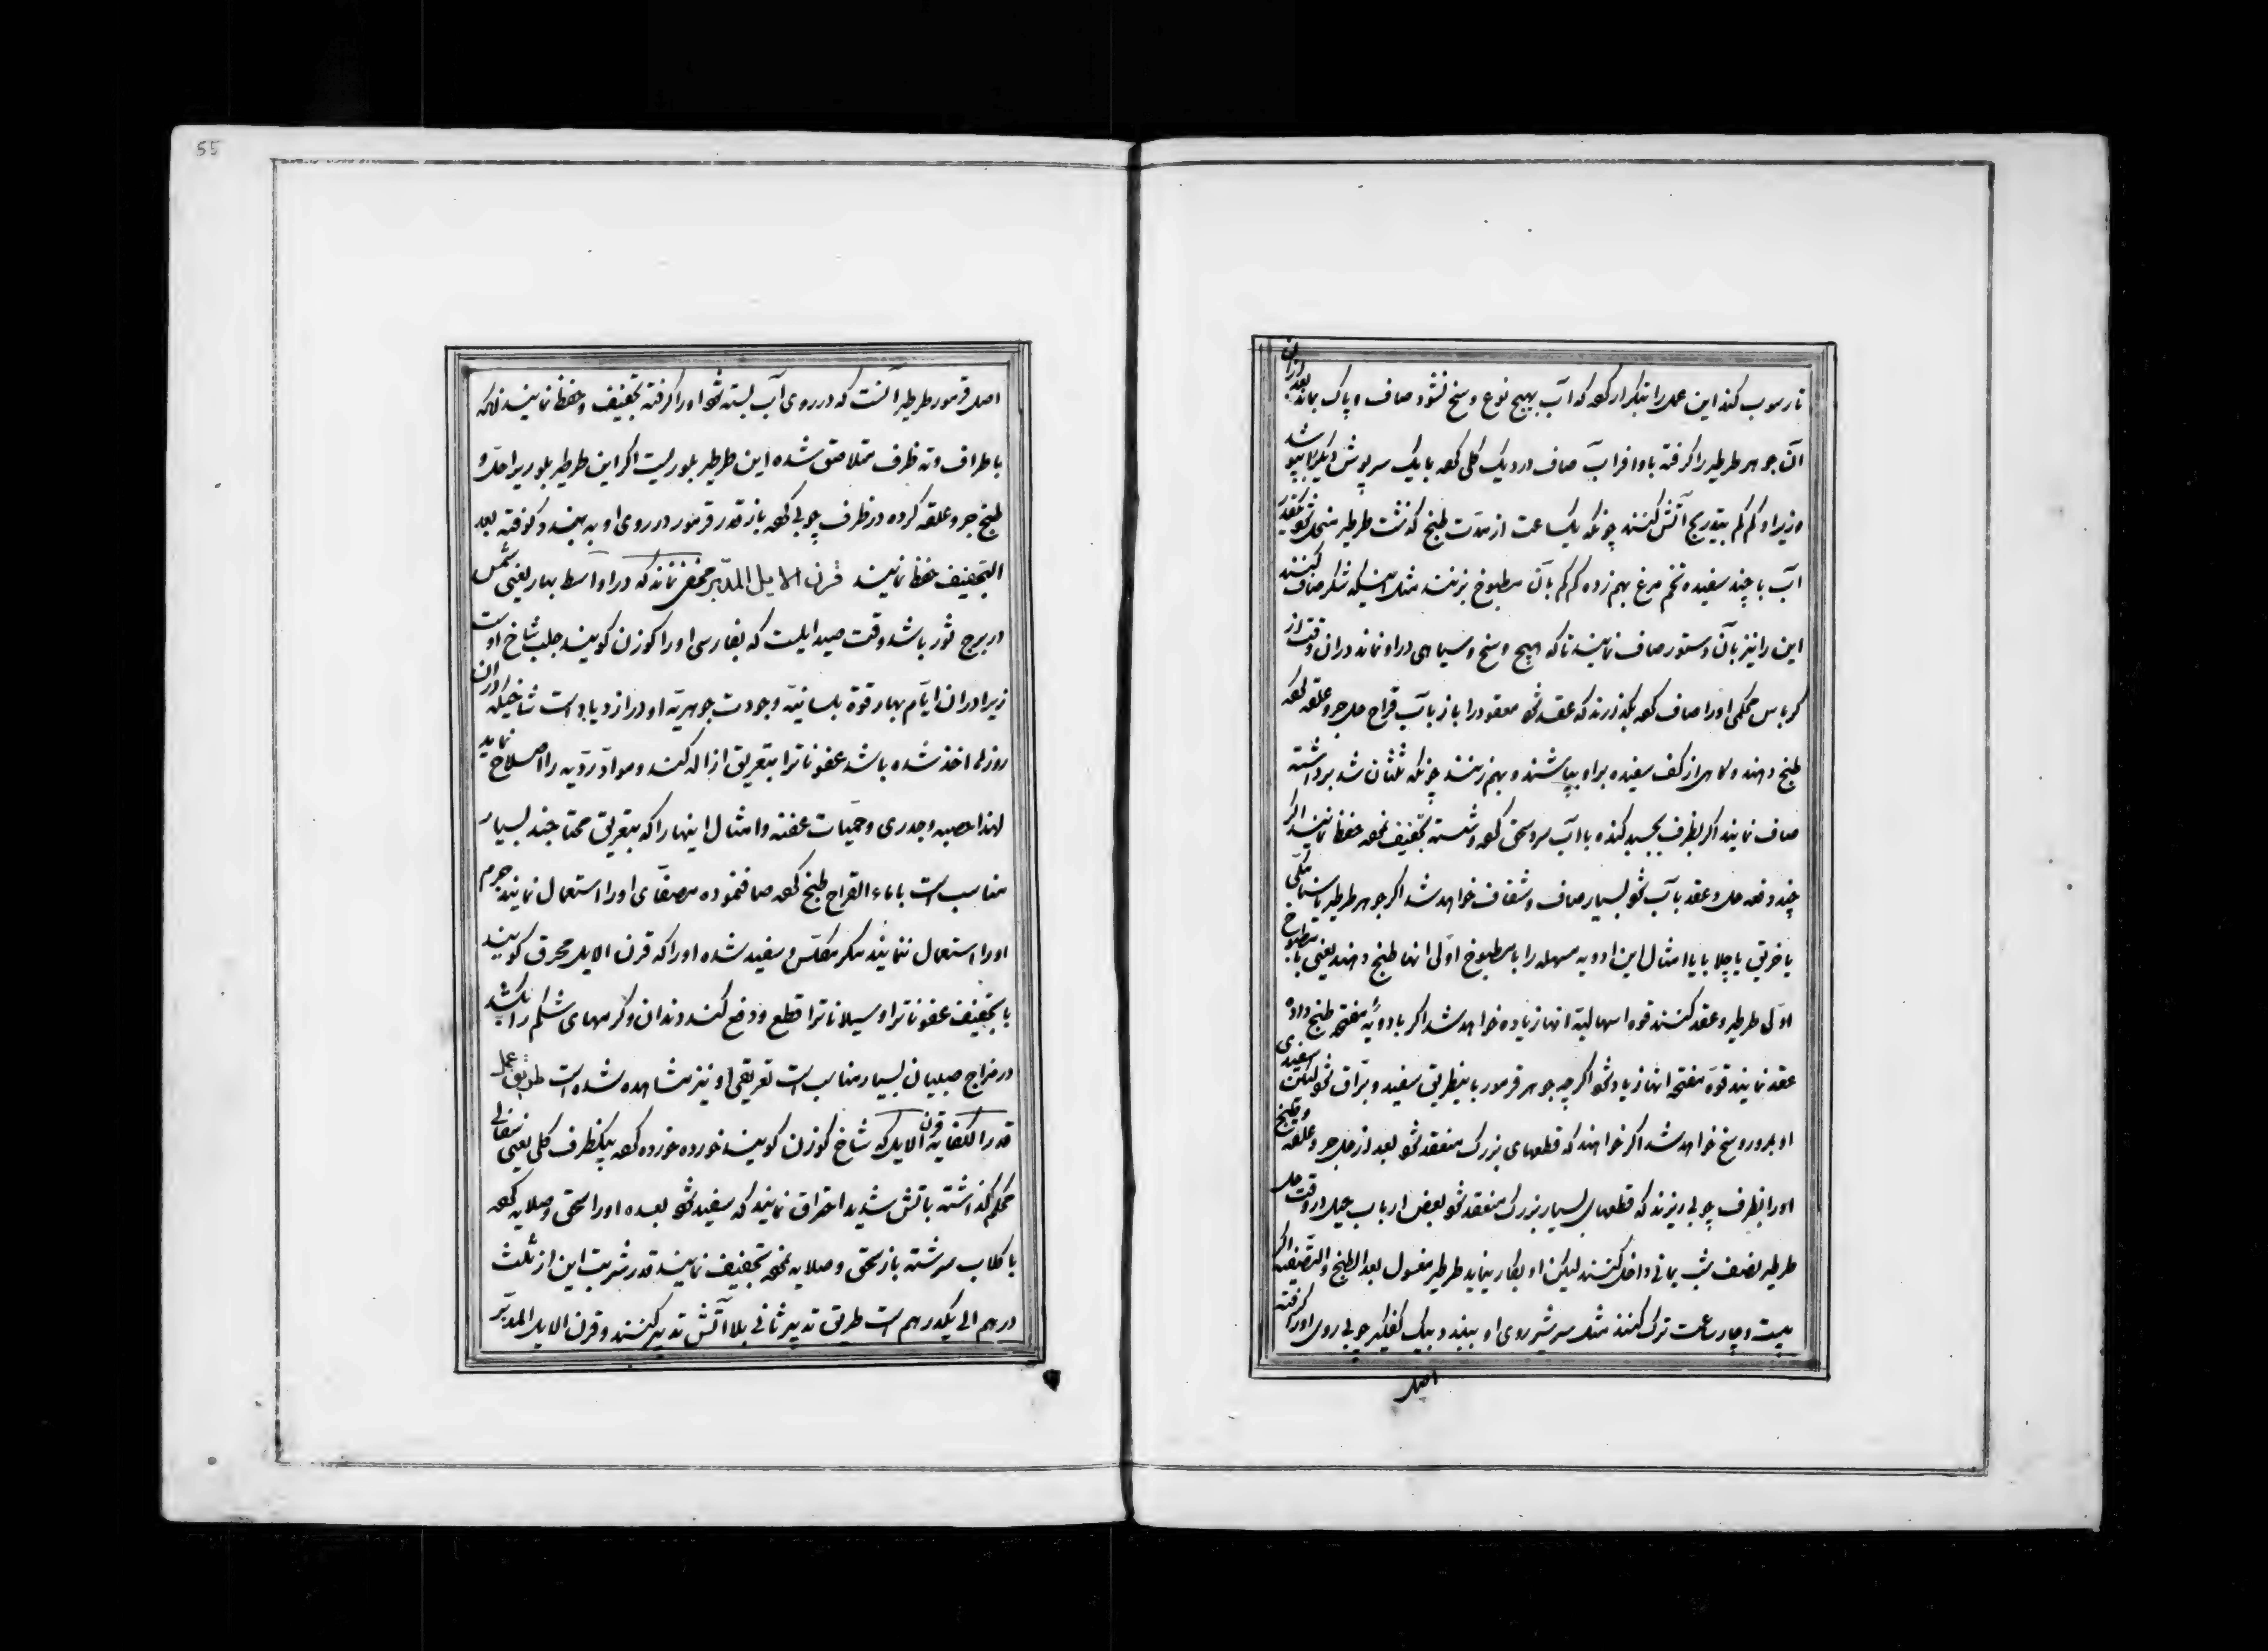 تا رسوب کند این عمل را بتکرار کرده که آب بهیچ نوع وسخ نشود صاف و پاک بماند بعد ازان
آن جوهر طرطیر را گرفته با وافر آب صاف در دیک کلی کرده با یک سرپوش دیکر بپوشد
و زیر او کم کم بتدریج آتش کنند چونکه یکساعت از مدت طبخ گذشت طرطیر منحل شود
آب با چند سفیده تخم مرغ بهم زده کم کم بآن مطبوخ بزنند مثل اینکه شکر صاف کنند
این را نیز بآن دستور صاف نمایند تا که هیچ وسخ و سیاهی در او نماند دران وقت از
کرباس محکمی او را صاف کرده بگذارند که عقد شود معقود را باز بآب قراح حل جر و علقه کرده
طبخ دهند و کاهی از کف سفیده بر او بپاشند و بهم زنند چونکه ثلثان شد برداشته
صاف نمایند اگر بظرف بچسبد کنده با آب سرد سحق کرده و شسته تجفیف نموده حفظ نمایند اگر
چند دفعه حل و عقد بآب شود بسیار صاف و شفاف خواهد شد اگر جوهر طرطیر با سنا مکی
یا خربق یا جلابا یا امثال این ادویه مسهله را با مطبوخ اولی انها طبخ دهند یعنی با مطبوخ
اولی طرطیر و عقد کنند قوه اسهالیه انها زیاده خواهد شد اگر با دویه مفتحه طبخ داده
عقد نمایند قوة مفتحه انها زیاد شود اگر چه جوهر قرمور باینطریق سفید و براق شود لیکن سفیدی
او بمرور وسخ خواهد شد اگر خواهند که قطعهای بزرک منعقد شود بعد از حل جر و علقه و طبخ
او را بظرف چوبی ریزند که قطعهای بسیار بزرک منعقد شود بعض ارباب حیل در وقت حل
طرطیر نصف شب یمانی داخل کنند لیکن او بکار نیاید طرطیر مغسول بعد الطبخ و التصفیه اگر
بیست و چهار ساعت ترک کنند مثل سرشیر روی او ببندد بیک کفکیر چوبی روی او را گرفته
اصل
55
اصل قرمور طرطیر آنست که در روی آب بسته شود او را گرفته تجفیف و حفظ نمایند آنکه
باطراف و ته ظرف متلاصق شده این طرطیر بلوریست اگر این طرطیر بلوری را حل و
طبخ جر و علقه کرده در ظرف چوبی کرده باز قدر قرمور در روی او به بندد گرفته بعد
التجفیف حفظ نمایند قرن الایل المدبر مخفی نماند که در اواسط بهار یعنی شمس
در برج ثور باشد وقت صید ایلیست که بفارسی او را کوزن کویند جلب شاخ اوست
زیرا دران ایام بهار قوة بلسانیه وجودت جوهریه او در ازدیاد است شاخیکه دران
روزها اخذ شده باشد عفوناترا بتعریق ازاله کند و مواد ردیه را اصلاح نماید
لهذا حصبه وجدری وحمیات عفنه وامثال اینها را که بتعریق محتاجند بسیار
مناسب است با ماء القراح طبخ کرده صاف نموده مصفای او را استعمال نمایند جرم
او را استعمال ننمایند مگر مکلس و سفید شده او را که قرن الایل محرق کویند
با تجفیف عفوناترا و سیلاناترا قطع و دفع کند دندان و کرمهای شکم را بکشد
در مزاج صبیان بسیار مناسب است تعریقی او نیز مشاهده شده است طریق عمل
قدر الکفایه قرن الایل که شاخ کوزن کویند خورده خورده کرده بیکظرف کلی یعنی سفالی
محکم گذاشته باتش شدید احراق نمایند که سفید شود بعده او را سحق و صلایه کرده
با کلاب سرشته باز سحق و صلایه نموده تجفیف نمایند قدر شربت این از ثلث
درهم الی یکدرهم است طریق تدبیر ثانی بلا آتش تدبیر کنند و قرن الایل المدبر